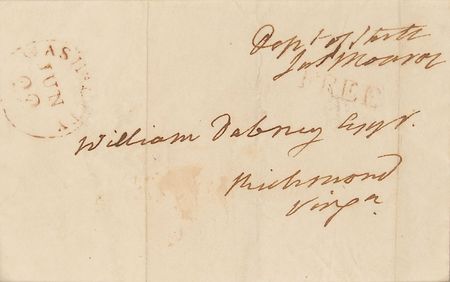 WASHN CITY
JUN
Dept of State
Jas Monroe
FREE
William Dabney Esqr.
Richmond
Virga